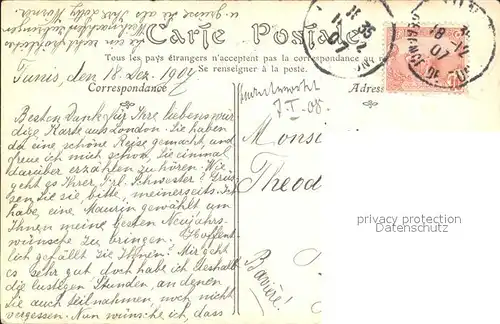 u. grüsse Sie als Ihre
Carte Postale
Tous les pays étrangers n'acceptent pas la correspondance au
Se renseigner à la poste.
Tunis, den 18. Dez. 1907
Correspondance
Adres
7 I - 08.
Besten Dank für Ihre liebenswür
dige Karte aus London. Sie haben
da eine schöne Reise gemacht, und
freue ich mich schon, Sie einmal
darüber erzählen zu hören. Wie
geht es Ihrer Frl. Schwester? Grüs
sen Sie sie, bitte, meinerseits. Ich
habe, eine Maurin gewählt um
Ihnen meine besten Neujahrs-
wünsche zu bringen. Hoffent-
lich gefällt Sie Ihnen? Mir geht
es sehr gut doch habe ich deshalb
die lustigen Stunden, an denen
Sie auch teilnahmen, noch nicht
vergessen. Nun wünsche ich, dass
Monsi
Theod
Bavière!
privacy protection
watermark